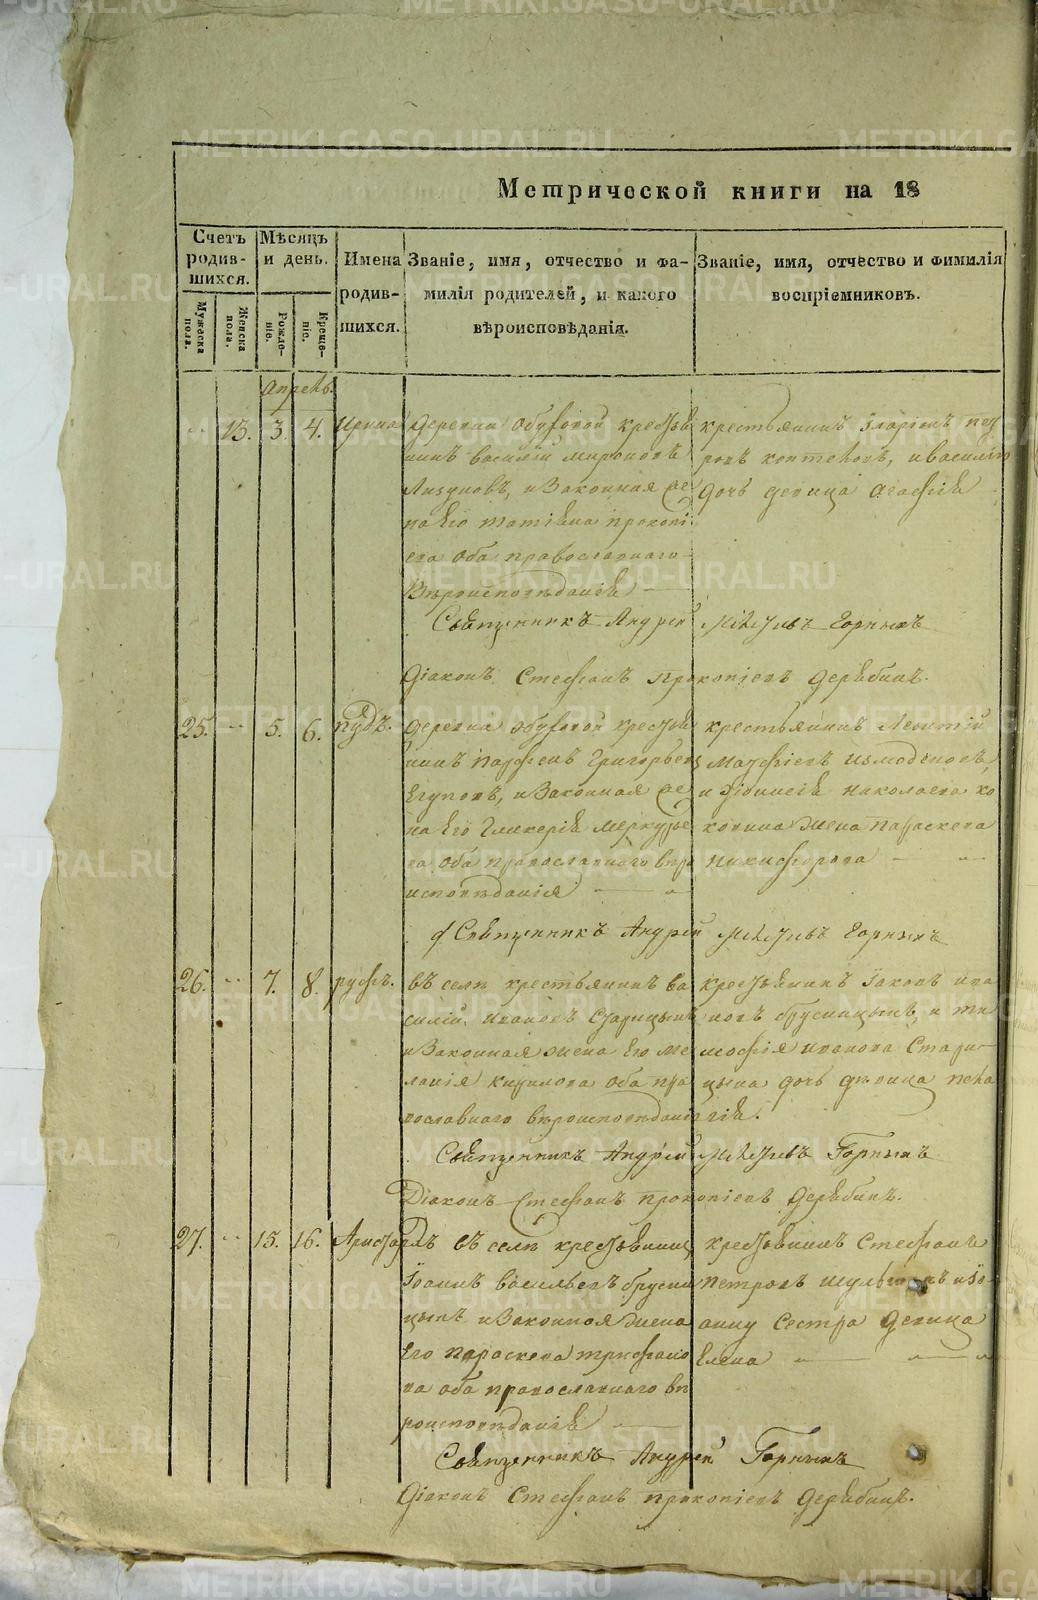 Метрической книги на 18
Счетъ родив-шихся.
Мужеска пола.
Женска пола.
Мѣсяцъ и день.
Рожде-ніе.
Креще-ніе.
Имена родив-шихся.
Званіе, имя, отчество и фа-
милія родителей, и какого
вѣроисповѣданія.
Званіе, имя, отчество и фимилія
воспріемниковъ.
Апрель
13. 3. 4. Ирина
деревни Обуховой крестья
нинъ василій мироновъ
Лизуновъ, и Законная же
на Его татіана прокопі
ева оба православнаго
Вѣроисповѣданія
крестьянинъ Іларіонъ пет
ровъ коптеловъ, и василія
дочь девица агафія
Священникъ Андрей Горныхъ
Діаконъ Стефанъ прокопіевъ Дерябинъ.
25. 5. 6. пудъ.
деревни обуховой крестья
нинъ парфенъ Григорьевъ
Егуновъ, и Законная же
на Его Гликерія меркурье
ва оба православнаго веро
исповѣданія
крестьянинъ Леонтій
и Діонисія николаева ко
жена Параскева
никифорова
Священникъ Андрей Горныхъ
26. 7. 8. руфъ.
въ селе крестьянинъ ва
силій ивановъ Старицынъ
и Законная жена Его ме
ланія кирилова оба пра
вославнаго вѣроисповѣданія
крестьянинъ Іаковъ ива
новъ брусницынъ, и ти
мофея иванова Стари-
цына дочь дѣвица пела
гія.
Священникъ Андрей Горныхъ
Діаконъ Стефанъ прокопіевъ Дерябинъ.
27. 15. 16. Аристархъ
въ селе крестьянинъ
Іоаннъ васильевъ брусни
цынъ и Законная жена
Его параскева трифано
ва оба православнаго вѣ
роисповѣданія
крестьянинъ Стефанъ
петровъ и Іо
анну Сестра девица
Елена
Священникъ Андрей Горныхъ
Діаконъ Стефанъ прокопіевъ Дерябинъ.
METRIKI.GASO-URAL.RU